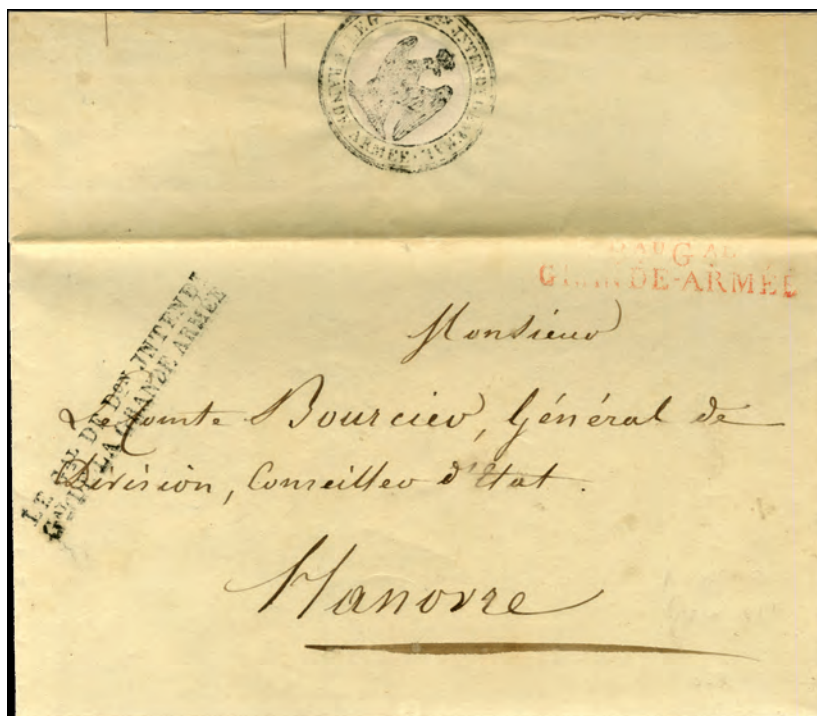 INTENDT GENERAL. GRANDE ARMÉE.
Bau Gal
GRANDE-ARMÉE
LE Gal DE Don INTENDT
Gal DE LA GRANDE ARMÉE
Monsieur
Le Comte Bourcier, Général de
Division, Conseiller d'Etat.
Hanovre